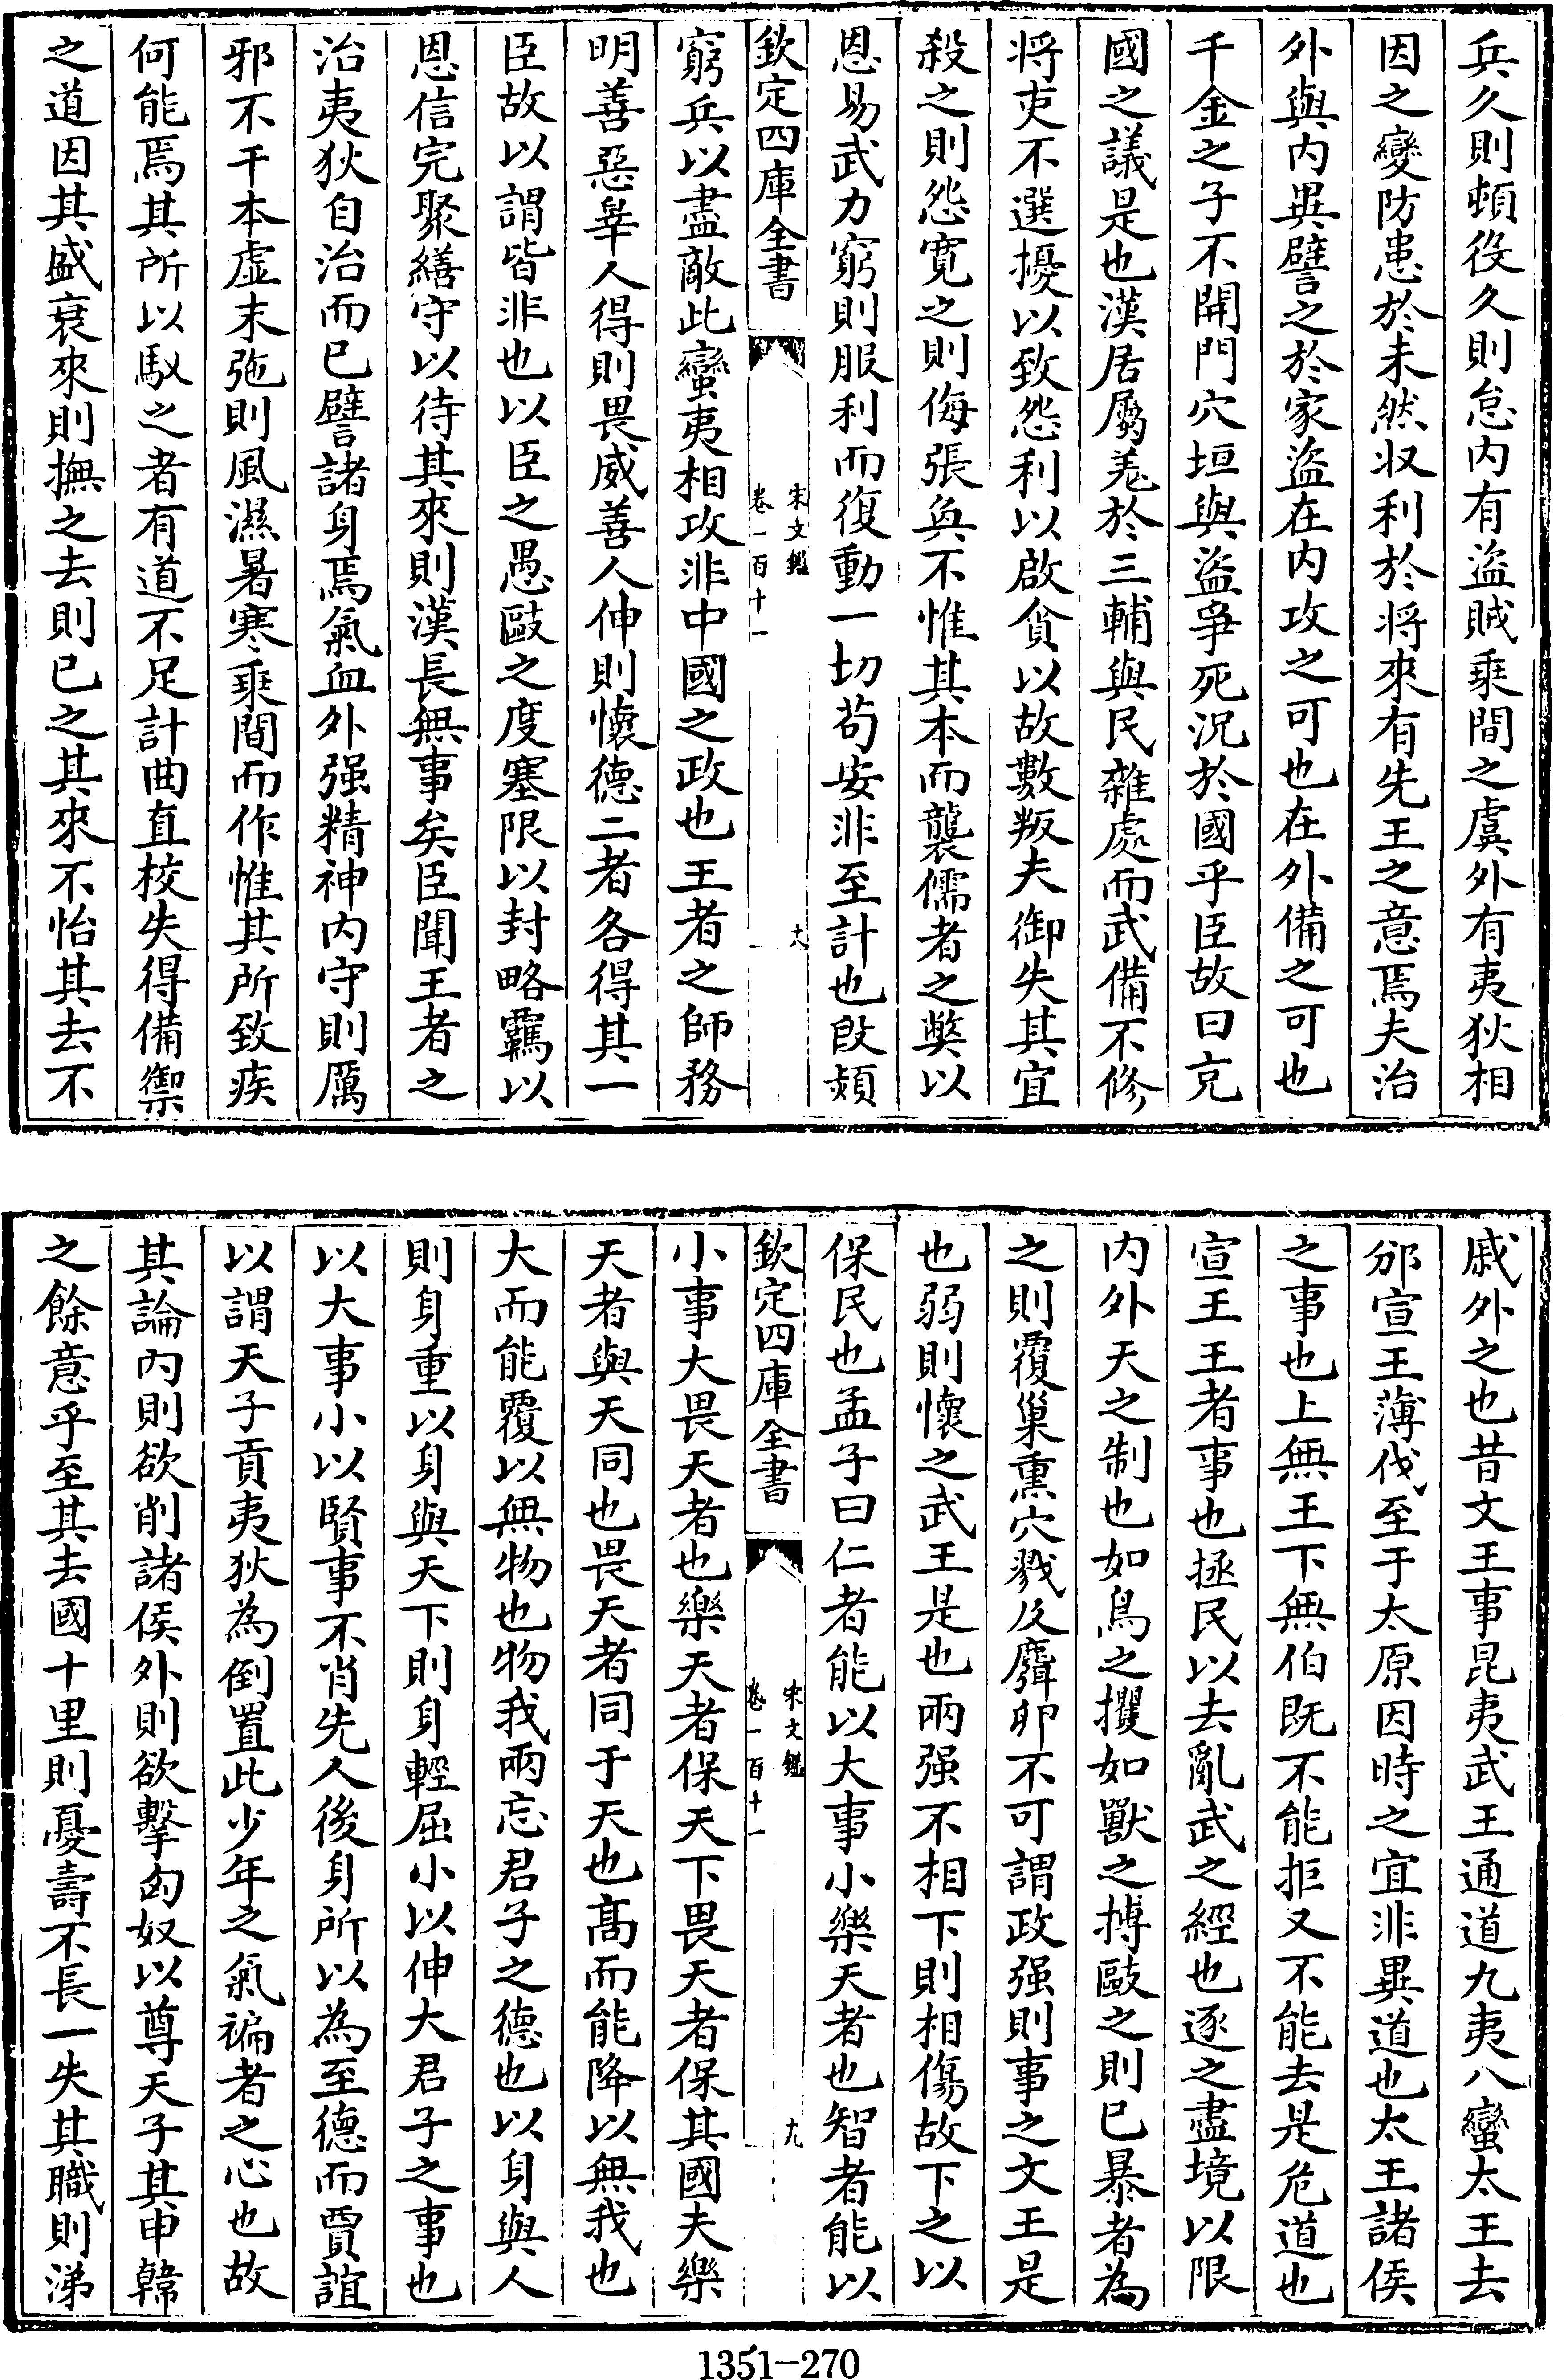 兵久則頓役久則怠内有盜賊乘間之虞外有夷狄相
因之變防患於未然収利於將來有先王之意焉夫治
外與内異譬之於家盜在内攻之可也在外備之可也
千金之子不開門穴垣與盜爭死況於國乎臣故曰充
國之議是也漢居屬羌於三輔與民雜處而武備不修
將吏不選擾以致怨利以啟貪以故數叛夫御失其宜
殺之則怨寛之則侮張奐不惟其本而襲儒者之獘以
恩易武力窮則服利而復動一切苟安非至計也段熲
欽定四庫全書
宋文鑑
卷一百十一
十八
窮兵以盡敵此蠻夷相攻非中國之政也王者之師務
明善惡辠人得則畏威善人伸則懷德二者各得其一
臣故以謂皆非也以臣之愚毆之度塞限以封略羈以
恩信完聚繕守以待其來則漢長無事矣臣聞王者之
治夷狄自治而已譬諸身焉氣血外强精神内守則厲
邪不干本虚末弛則風濕暑寒乘間而作惟其所致疾
何能焉其所以馭之者有道不足計曲直校失得備禦
之道因其盛衰來則撫之去則已之其來不怡其去不
戚外之也昔文王事昆夷武王通道九夷八蠻太王去
邠宣王薄伐至于太原因時之宜非異道也太王諸侯
之事也上無王下無伯既不能拒又不能去是危道也
宣王王者事也拯民以去亂武之經也逐之盡境以限
内外天之制也如鳥之攫如獸之搏毆之則已暴者為
之則覆巢熏穴戮及麛卵不可謂政强則事之文王是
也弱則懷之武王是也兩强不相下則相傷故下之以
保民也孟子曰仁者能以大事小樂天者也智者能以
欽定四庫全書
宋文鑑
卷一百十一
十九
小事大畏天者也樂天者保天下畏天者保其國夫樂
天者與天同也畏天者同于天也髙而能降以無我也
大而能覆以無物也物我兩忘君子之德也以身與人
則身重以身與天下則身輕屈小以伸大君子之事也
以大事小以賢事不肖先人後身所以為至德而賈誼
以謂天子貢夷狄為倒置此少年之氣褊者之心也故
其論内則欲削諸侯外則欲擊匈奴以尊天子其申韓
之餘意乎至其去國十里則憂壽不長一失其職則涕
1351—270